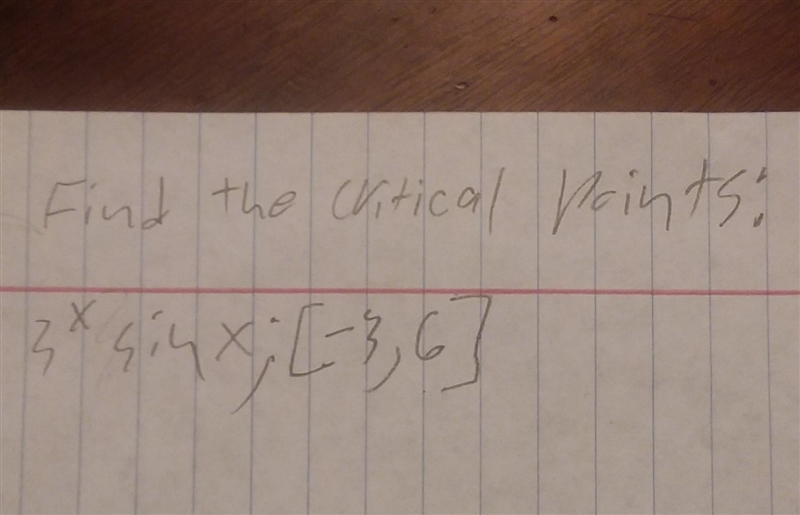 Find the critical points:
3^x sin x; [-3, 6]